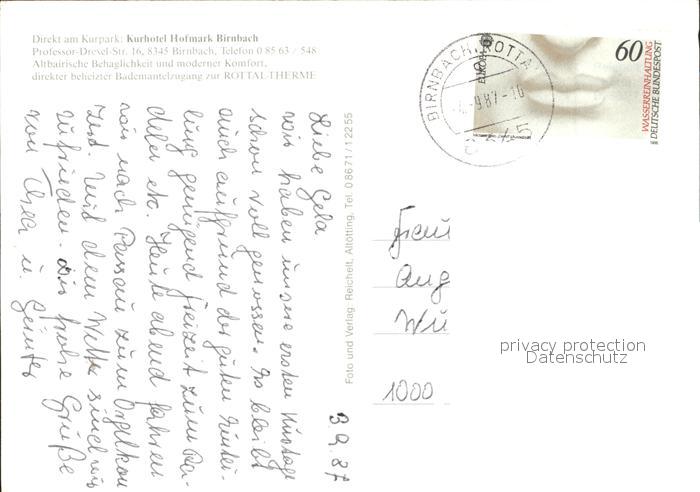 Direkt am Kurpark: Kurhotel Hofmark Birnbach
Professor-Drexel-Str. 16, 8345 Birnbach, Telefon 0 85 63 / 548
Altbairische Behaglichkeit und moderner Komfort,
direkter beheizter Bademantelzugang zur ROTTAL-THERME
3.9.87
Liebe Gela
wir haben unsere ersten Kurtage
schon voll genossen. Es bleibt
auch aufgrund der guten Eintei-
lung genügend Freizeit zum Ra-
deln etc. Heute abend fahren
wir nach Passau zum Orgelkon
zert. Mit dem Wetter sind wir
zufrieden. Die frohe Grüße
von Thea u. Günter
Foto und Verlag: Reichelt, Altötting, Tel. 0 86 71 / 1 22 55
BIRNBACH, ROTTAL
-9.87-10
8345
EUROPA
60
WASSERREINHALTUNG
DEUTSCHE BUNDESPOST
Frau
Ang
Wü
1000
privacy protection
Datenschutz